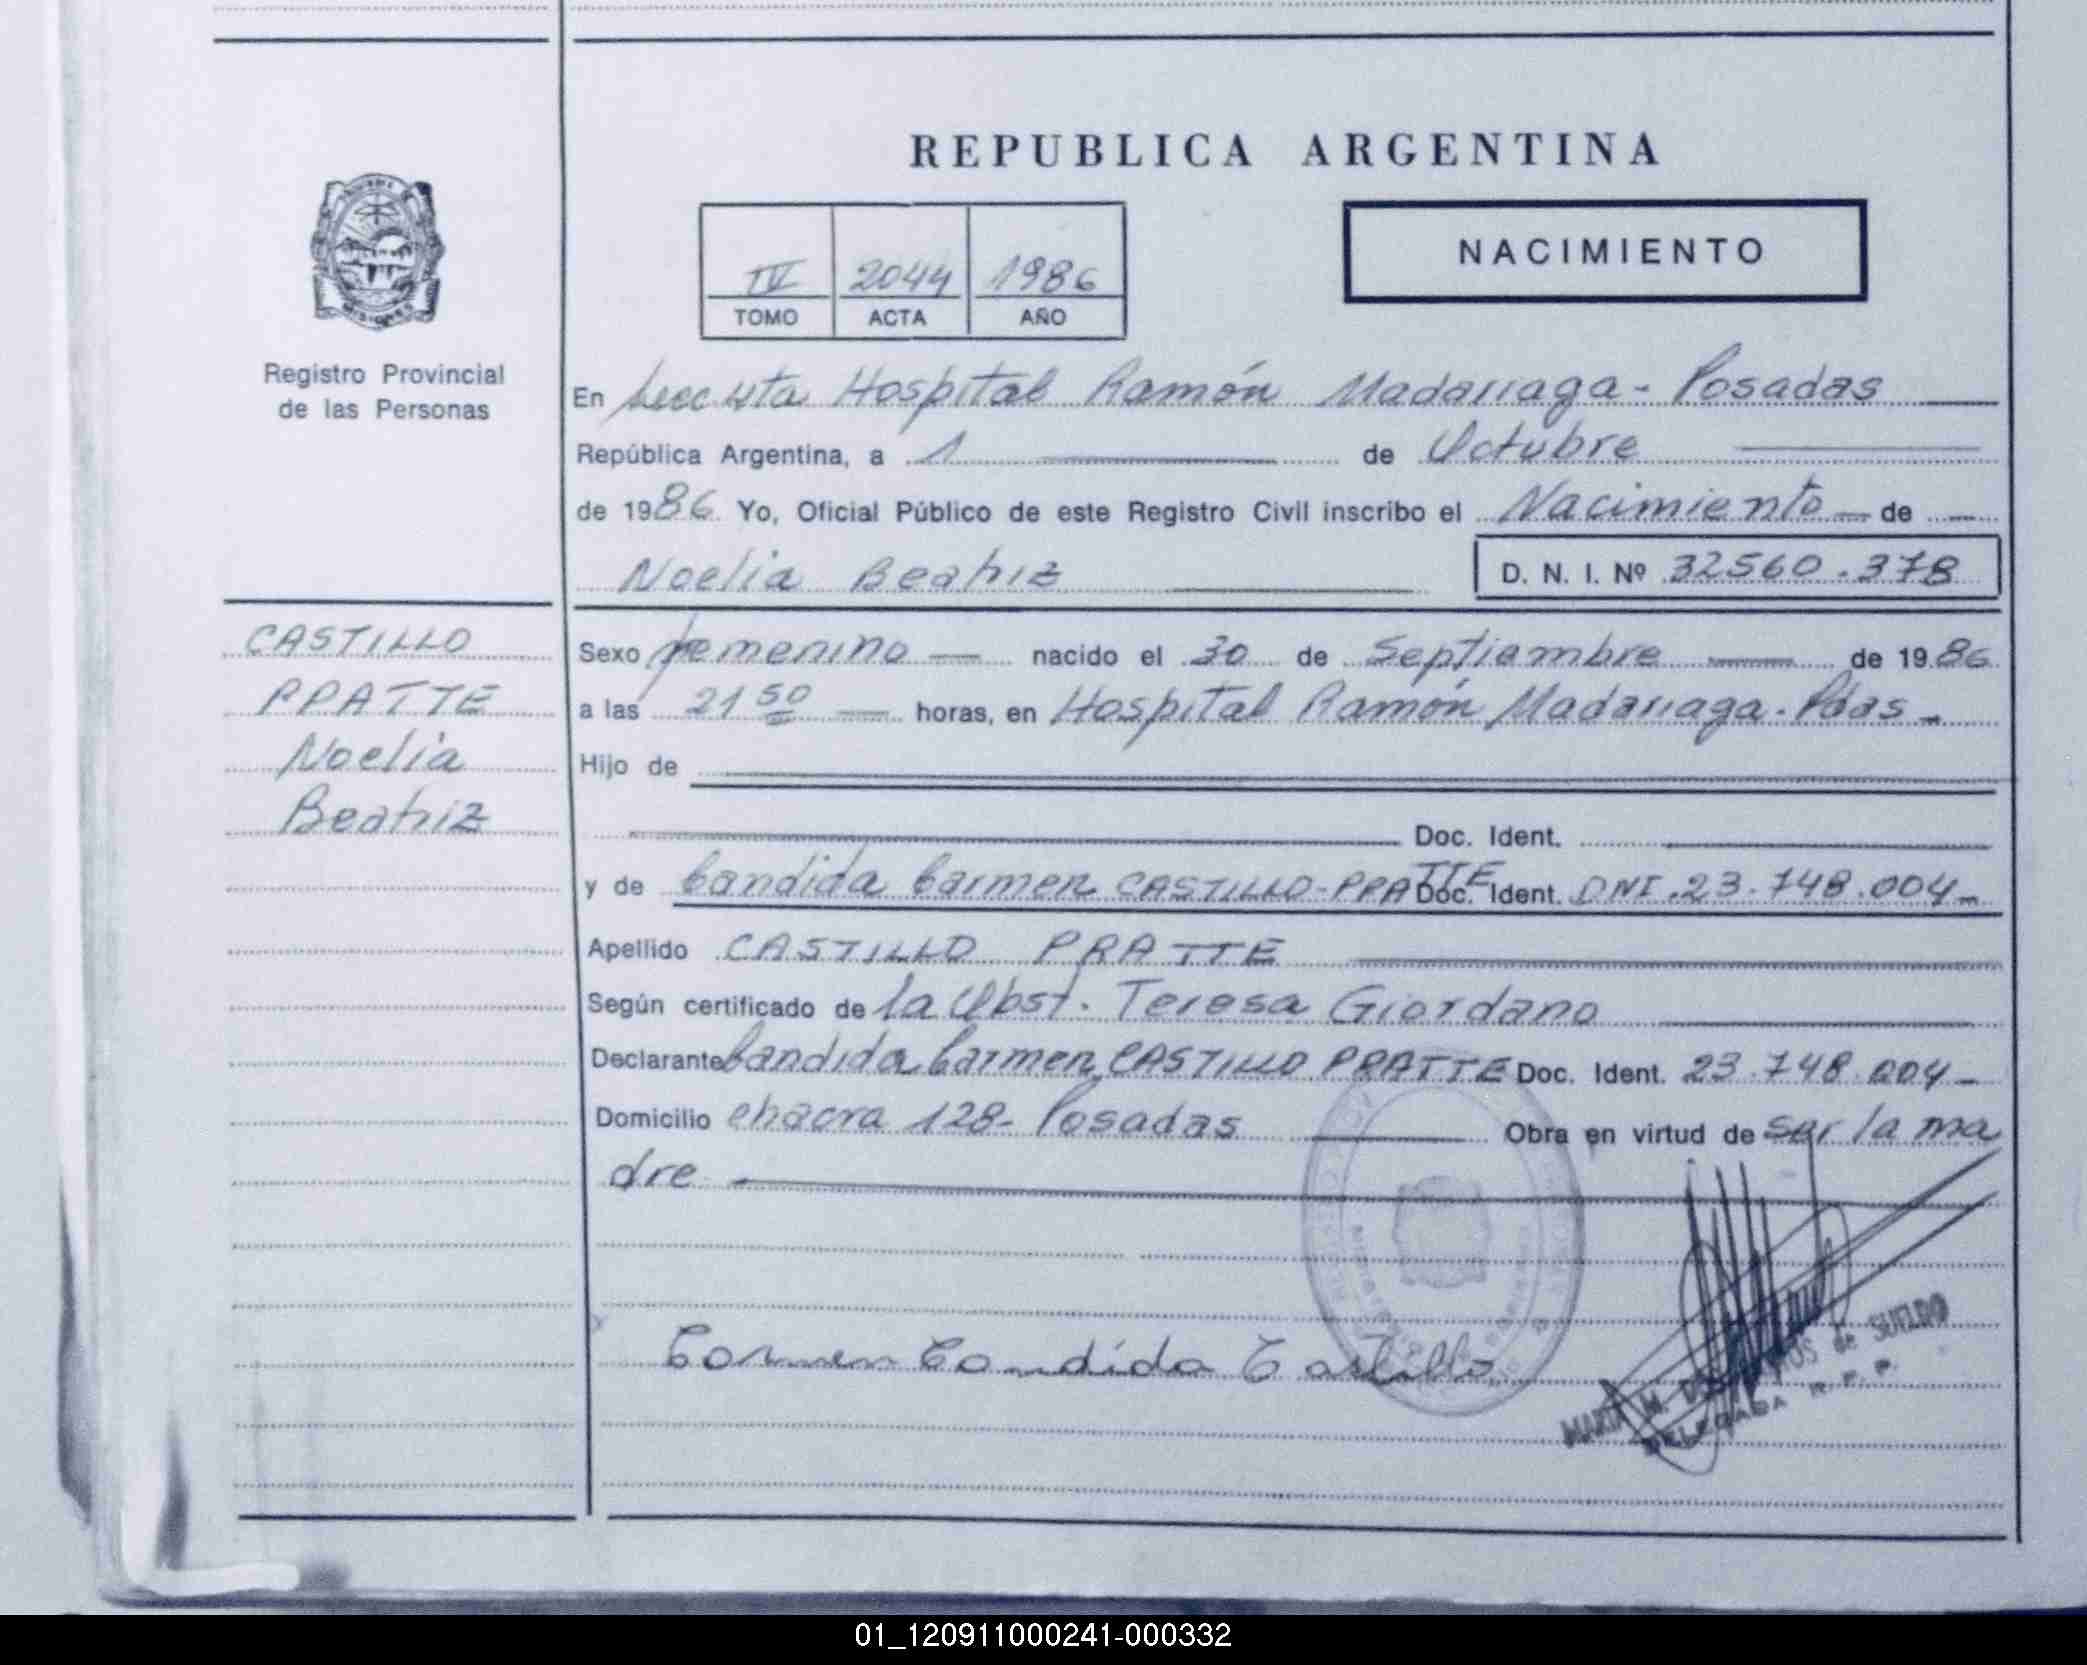 REPUBLICA ARGENTINA
NACIMIENTO
IV 2044 1986
TOMO ACTA AÑO
Registro Provincial
de las Personas
En Hospital Ramón Madariaga - Posadas
República Argentina, a 1 de Octubre
de 1986 Yo, Oficial Público de este Registro Civil inscribo el Nacimiento de
Noelia Beatriz D. N. I. Nº 32560.378
CASTILLO
PRATTE
Noelia
Beatriz
Sexo femenino nacido el 30 de Septiembre de 1986
a las 21 50 horas, en Hospital Ramón Madariaga - Pdas -
Hijo de
Doc. Ident.
y de Candida Carmen CASTILLO - PRATTE Doc. Ident. DNI .23.748.004 -
Apellido CASTILLO PRATTE
Según certificado de la Obst. Teresa Giordano
Declarante Candida Carmen CASTILLO PRATTE Doc. Ident. 23.748.004 -
Domicilio chacra 128- Posadas Obra en virtud de ser la ma
dre
Carmen Candida Castillo
MARIA M. de SUELDO
DELEGADA R. P. P.
01_120911000241-000332